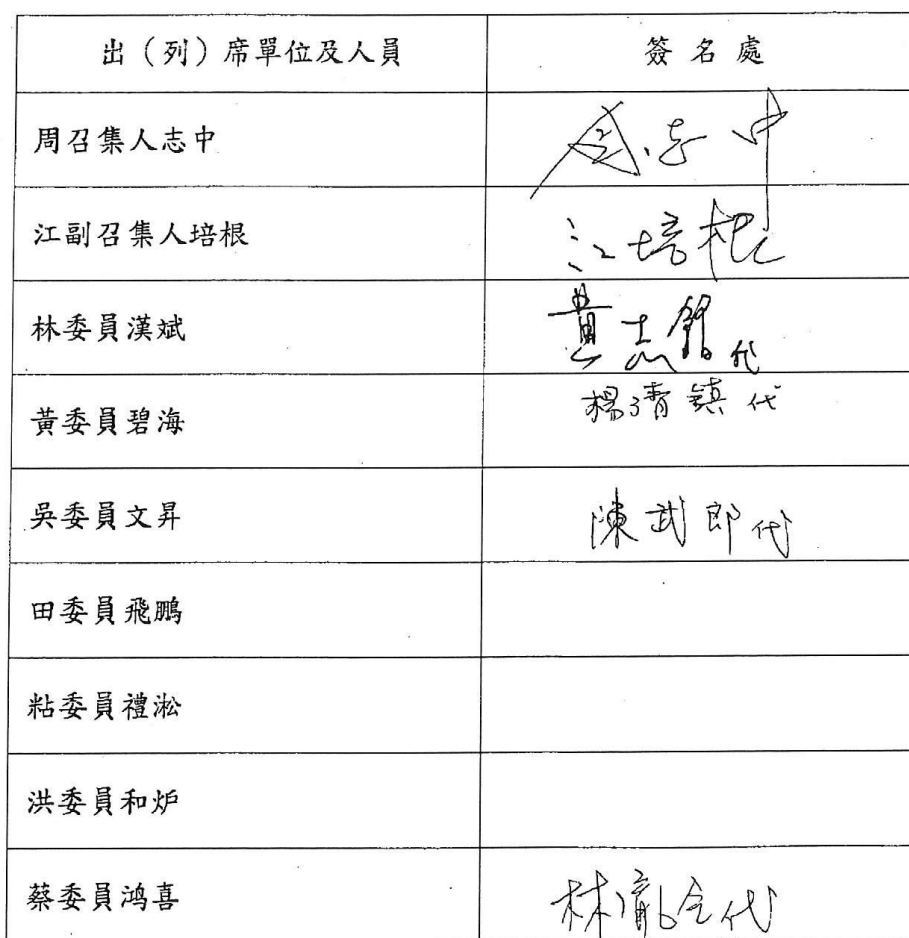 出（列）席單位及人員 簽名處
周召集人志中 周志中
江副召集人培根 江培根
林委員漢斌 黃志 代
黃委員碧海 楊清鎮代
吳委員文昇 陳武郎代
田委員飛鵬
粘委員禮淞
洪委員和炉
蔡委員鴻喜 林 代